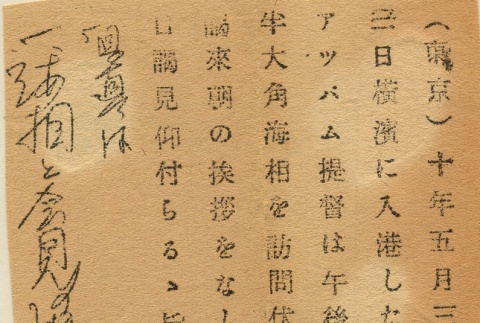 （東京）十年五月三
三日横濱に入港した
アツパム提督は午後
半大角海相を訪問伏
謁來朝の挨拶をなし
日謁見仰付らるゝ旨
寫真は
海相と会見